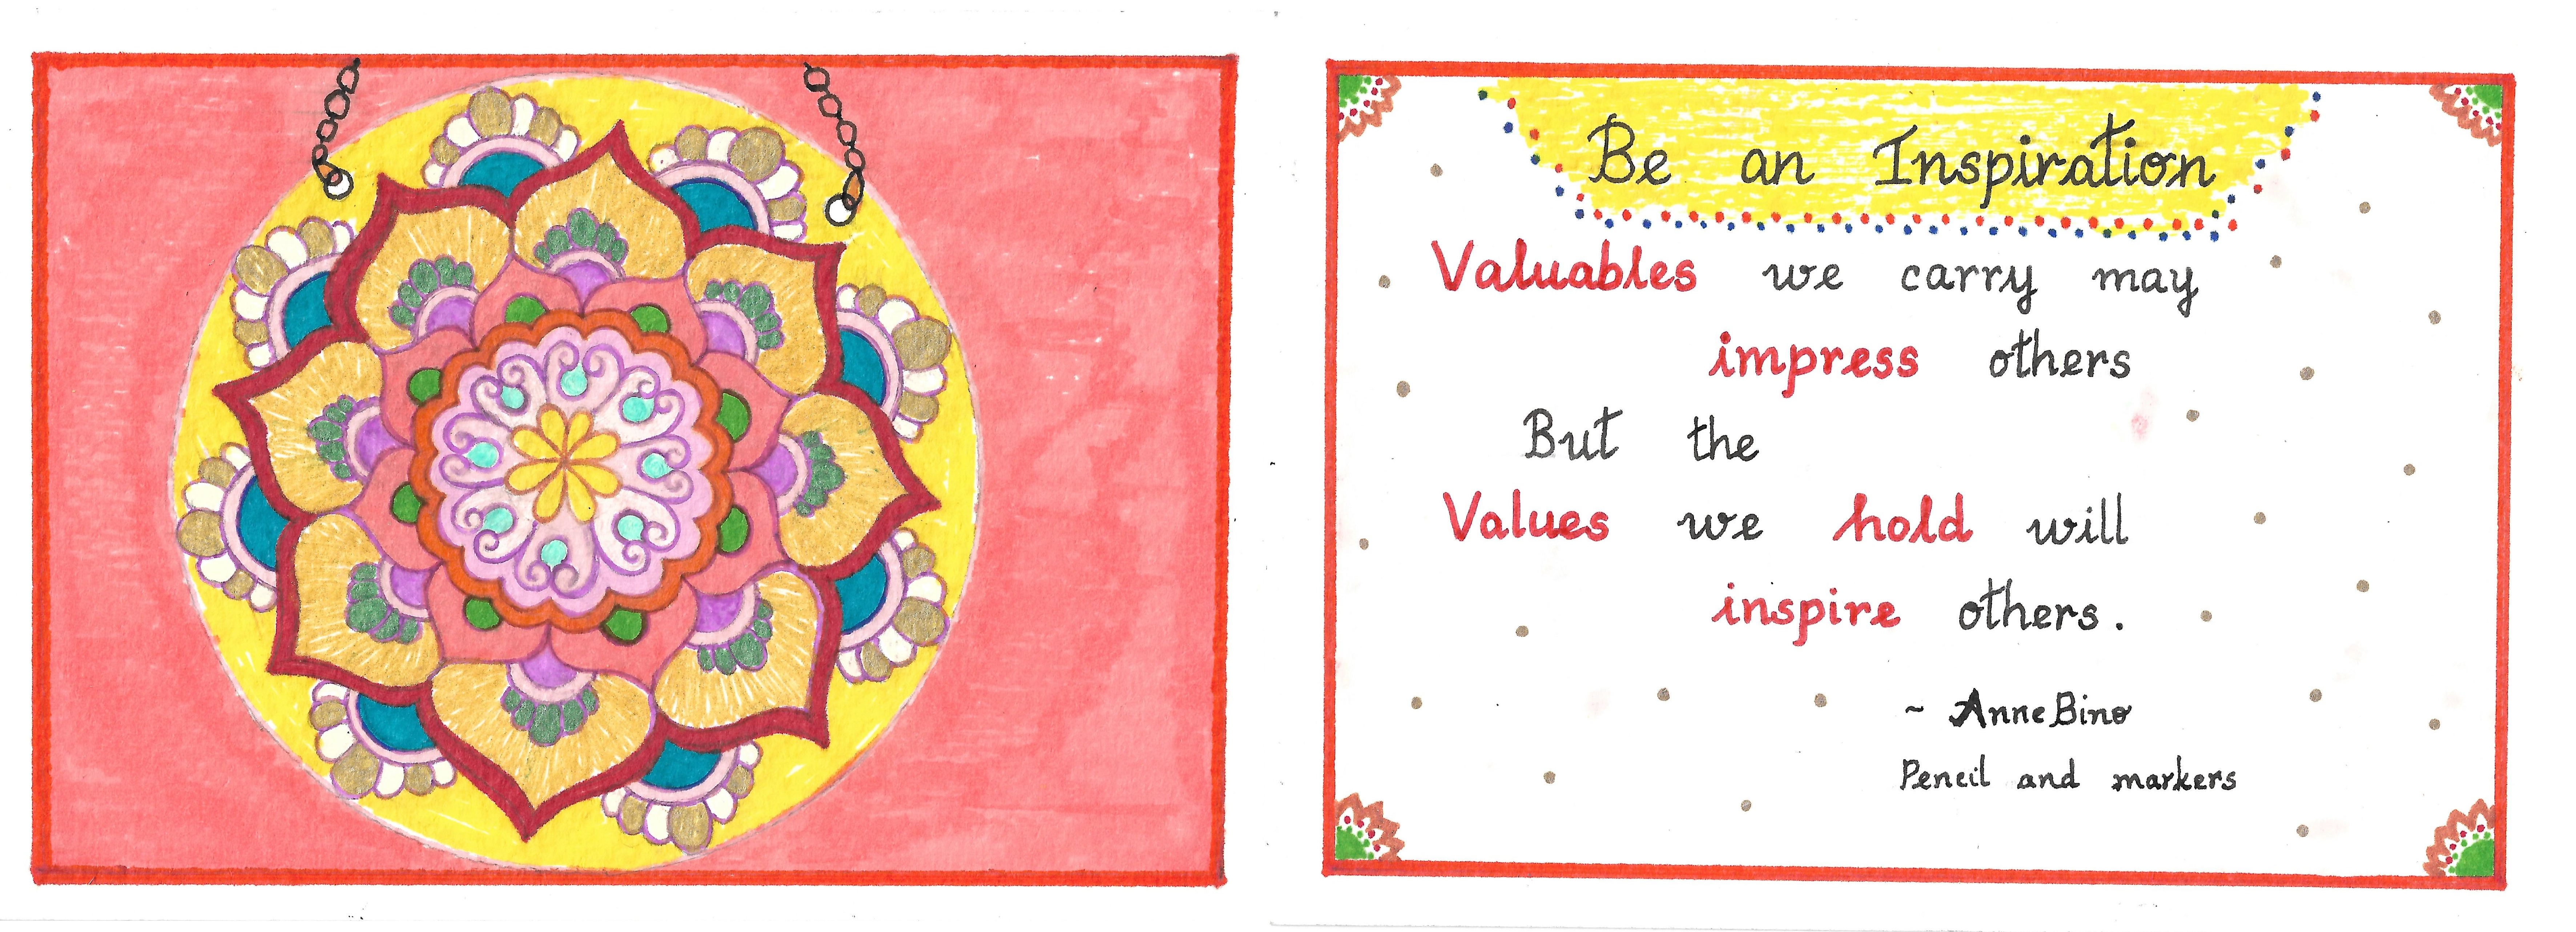 Be an Inspiration
Valuables we carry may
impress others
But the
Values we hold will
inspire others.
~ Anne Bino
Pencil and markers